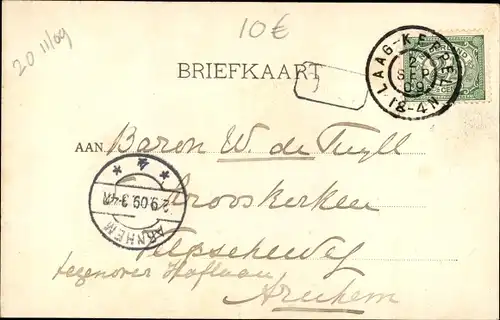 20 11/09
10€
BRIEFKAART
LAAG-KEPPEL
2
SEP
09
12-4N
AAN. Baron W. de Tuyll
v. Serooskerken
Velpscheweg
tegenover Hoflaan
Arnhem
4
2.9.09.3-4N
ARNHEM